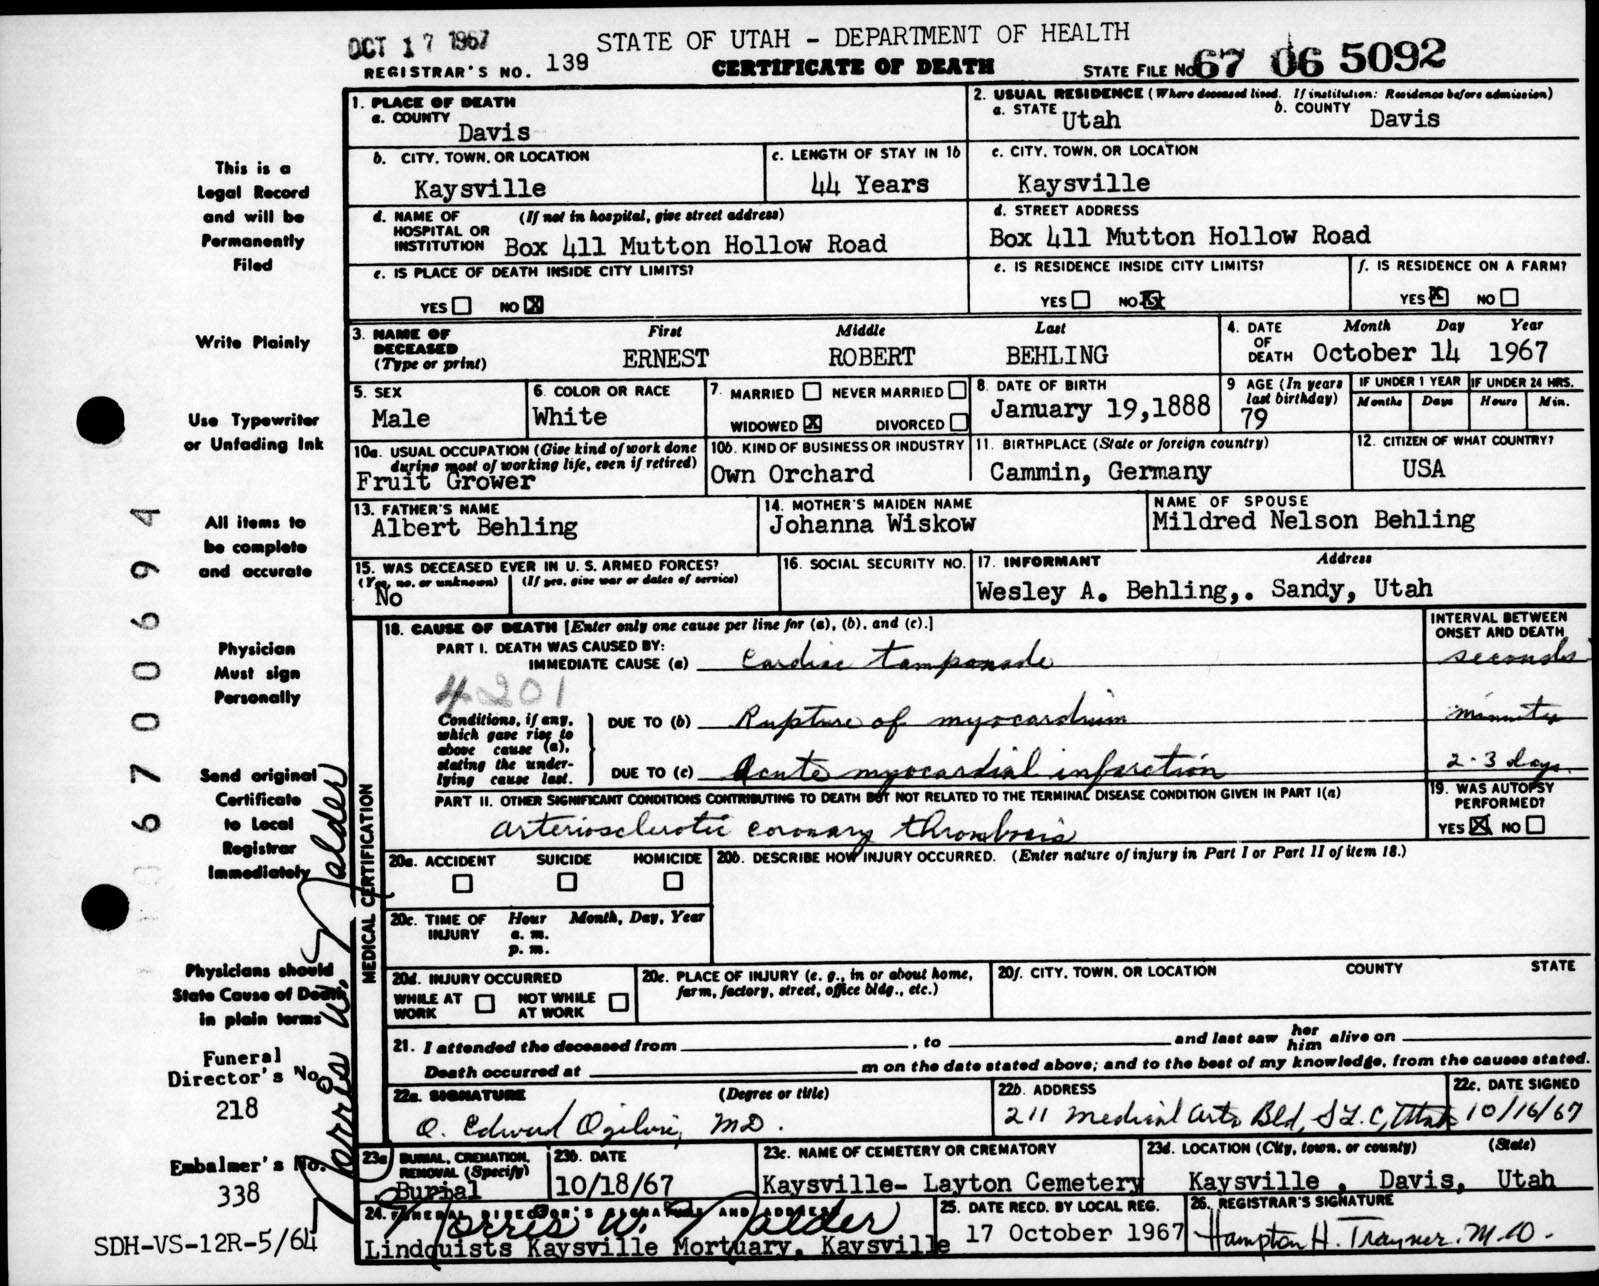 OCT 17 1967
STATE OF UTAH - DEPARTMENT OF HEALTH
REGISTRAR'S NO. 139
CERTIFICATE OF DEATH
STATE FILE NO 67 06 5092
1. PLACE OF DEATH
a. COUNTY
Davis
2. USUAL RESIDENCE (Where deceased lived. If institution: Residence before admission)
a. STATE Utah b. COUNTY Davis
b. CITY, TOWN, OR LOCATION
Kaysville
c. LENGTH OF STAY IN 1b
44 Years
c. CITY, TOWN, OR LOCATION
Kaysville
d. NAME OF HOSPITAL OR INSTITUTION (If not in hospital, give street address)
Box 411 Mutton Hollow Road
d. STREET ADDRESS
Box 411 Mutton Hollow Road
e. IS PLACE OF DEATH INSIDE CITY LIMITS?
YES NO X
e. IS RESIDENCE INSIDE CITY LIMITS?
YES NO X
f. IS RESIDENCE ON A FARM?
YES X NO
3. NAME OF DECEASED (Type or print)
First Middle Last
ERNEST ROBERT BEHLING
4. DATE OF DEATH
Month Day Year
October 14 1967
5. SEX
Male
6. COLOR OR RACE
White
7. MARRIED NEVER MARRIED
WIDOWED X DIVORCED
8. DATE OF BIRTH
January 19,1888
9 AGE (In years last birthday)
79
IF UNDER 1 YEAR
Months Days
IF UNDER 24 HRS.
Hours Min.
10a. USUAL OCCUPATION (Give kind of work done during most of working life, even if retired)
Fruit Grower
10b. KIND OF BUSINESS OR INDUSTRY
Own Orchard
11. BIRTHPLACE (State or foreign country)
Cammin, Germany
12. CITIZEN OF WHAT COUNTRY?
USA
13. FATHER'S NAME
Albert Behling
14. MOTHER'S MAIDEN NAME
Johanna Wiskow
NAME OF SPOUSE
Mildred Nelson Behling
15. WAS DECEASED EVER IN U. S. ARMED FORCES?
(Yes, no, or unknown) (If yes, give war or dates of service)
No
16. SOCIAL SECURITY NO.
17. INFORMANT Address
Wesley A. Behling,. Sandy, Utah
MEDICAL CERTIFICATION
18. CAUSE OF DEATH [Enter only one cause per line for (a), (b), and (c).]
INTERVAL BETWEEN ONSET AND DEATH
PART I. DEATH WAS CAUSED BY:
IMMEDIATE CAUSE (a) Cardiac tamponade seconds
4201
Conditions, if any, which gave rise to above cause (a), stating the underlying cause last.
DUE TO (b) Rupture of myocardium minutes
DUE TO (c) Acute myocardial infarction 2-3 days
PART II. OTHER SIGNIFICANT CONDITIONS CONTRIBUTING TO DEATH BUT NOT RELATED TO THE TERMINAL DISEASE CONDITION GIVEN IN PART I(a)
arteriosclerotic coronary thrombosis
19. WAS AUTOPSY PERFORMED?
YES X NO
20a. ACCIDENT SUICIDE HOMICIDE
20b. DESCRIBE HOW INJURY OCCURRED. (Enter nature of injury in Part I or Part II of item 18.)
20c. TIME OF INJURY Hour Month, Day, Year
a. m.
p. m.
20d. INJURY OCCURRED
WHILE AT WORK NOT WHILE AT WORK
20e. PLACE OF INJURY (e. g., in or about home, farm, factory, street, office bldg., etc.)
20f. CITY, TOWN, OR LOCATION COUNTY STATE
21. I attended the deceased from , to and last saw her him alive on
Death occurred at m on the date stated above; and to the best of my knowledge, from the causes stated.
22a. SIGNATURE (Degree or title)
O. Edward Ogilvie, M.D.
22b. ADDRESS
211 Medical Arts Bld, S.L.C, Utah
22c. DATE SIGNED
10/16/67
23a BURIAL, CREMATION, REMOVAL (Specify)
Burial
23b. DATE
10/18/67
23c. NAME OF CEMETERY OR CREMATORY
Kaysville- Layton Cemetery
23d. LOCATION (City, town, or county) (State)
Kaysville , Davis, Utah
24. FUNERAL DIRECTOR'S SIGNATURE AND ADDRESS
Norris W. Nalder
Lindquists Kaysville Mortuary, Kaysville
25. DATE RECD. BY LOCAL REG.
17 October 1967
26. REGISTRAR'S SIGNATURE
Hampton H. Trayner. M.D.
This is a
Legal Record
and will be
Permanently
Filed
Write Plainly
Use Typewriter
or Unfading Ink
All items to
be complete
and accurate
Physician
Must sign
Personally
Send original
Certificate
to Local
Registrar
Immediately
Physicians should
State Cause of Death
in plain terms
Funeral
Director's No.
218
Embalmer's No.
338
SDH-VS-12R-5/64
Norris W. Nalder
0 6 7 0 0 6 9 4